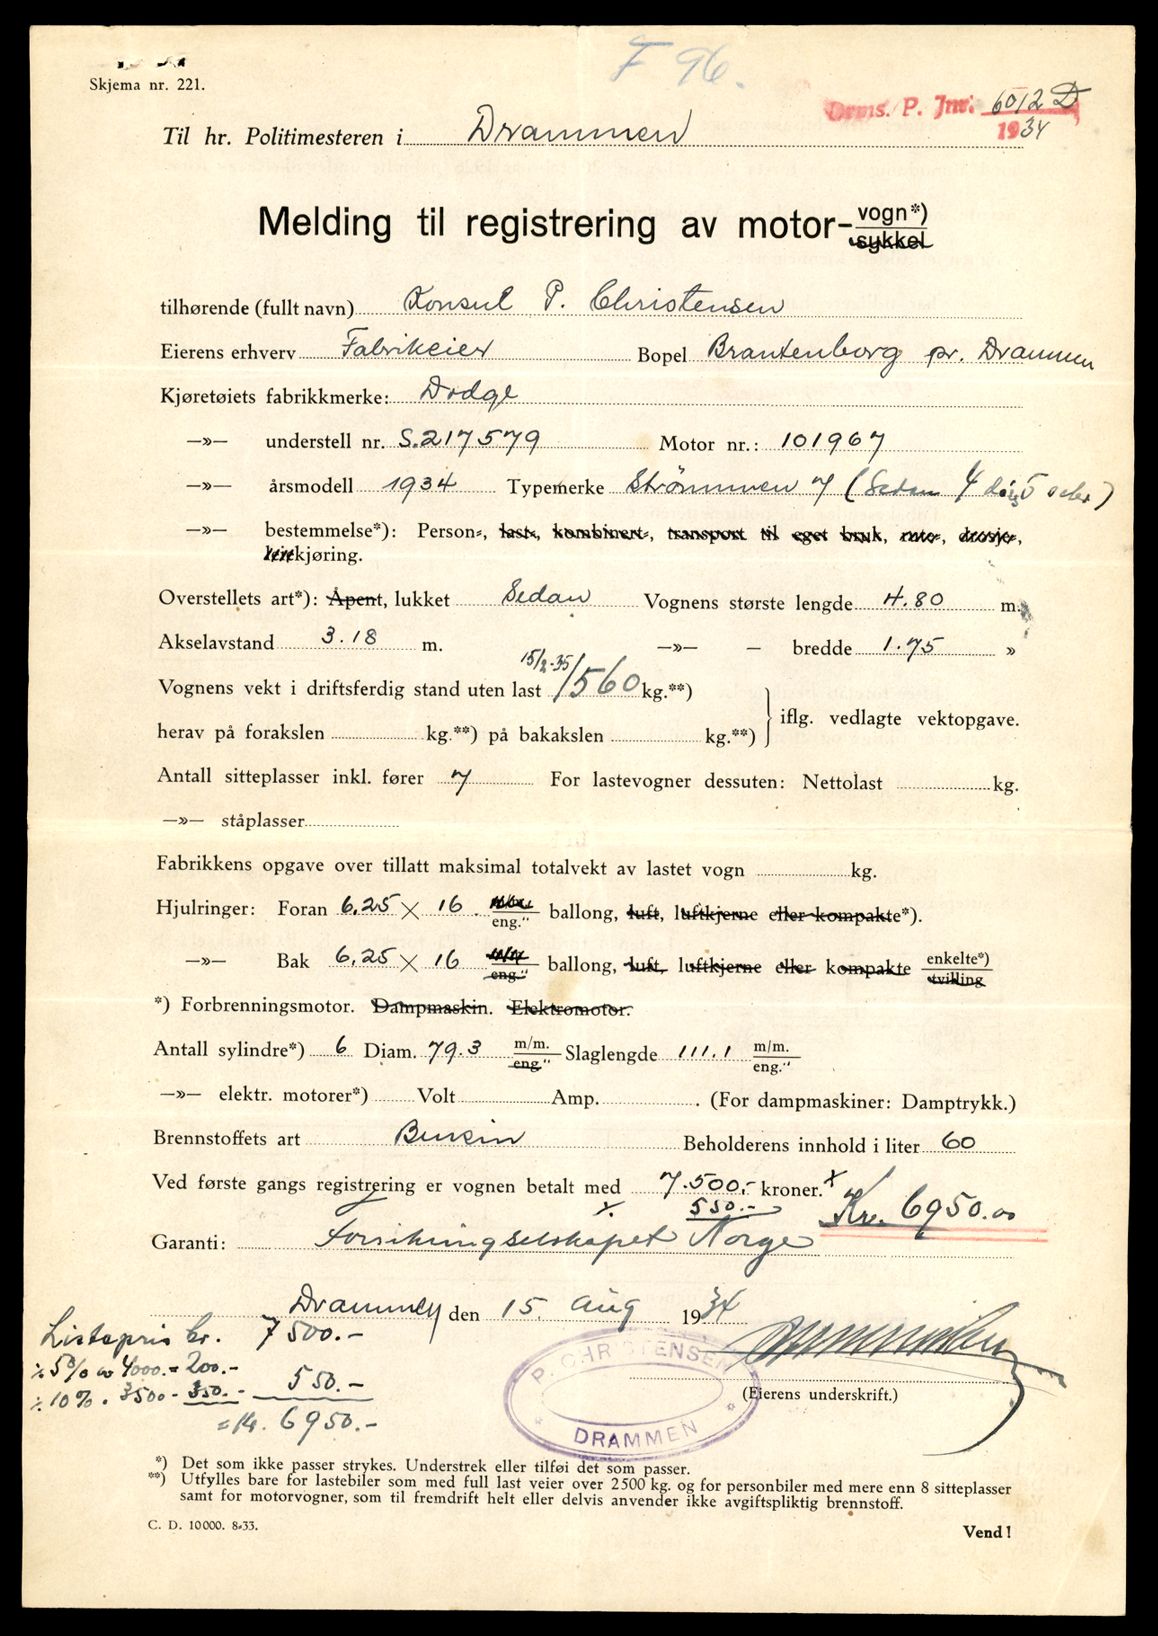 F 96.
Skjema nr. 221.
Drms. P. Jnr. 6012 D
1934
Til hr. Politimesteren i Drammen
Melding til registrering av motor- vogn*)
sykkel
tilhørende (fullt navn) Konsul P. Christensen
Eierens erhverv Fabrikeier Bopel Brantenborg pr. Drammen
Kjøretøiets fabrikkmerke: Dodge
—»— understell nr. S.217579 Motor nr.: 101967
—»— årsmodell 1934 Typemerke Strömmen 7 (Sedan 4 dørs
—»— bestemmelse*): Person-, last-, kombinert-, transport til eget bruk, rute-, drosje-,
kjøring.
Overstellets art*): Åpent, lukket Sedan Vognens største lengde 4.80 m.
Akselavstand 3.18 m. —»— — bredde 1.75 »
15/2-35
Vognens vekt i driftsferdig stand uten last 1560 kg.**)
herav på forakslen kg.**) på bakakslen kg.**) iflg. vedlagte vektopgave.
Antall sitteplasser inkl. fører 7 For lastevogner dessuten: Nettolast kg.
—»— ståplasser
Fabrikkens opgave over tillatt maksimal totalvekt av lastet vogn kg.
Hjulringer: Foran 6.25 × 16 eng." ballong, luft, luftkjerne eller kompakte*).
—»— Bak 6.25 × 16 m/m eng." ballong, luft, luftkjerne eller kompakte enkelte*) tvilling
*) Forbrenningsmotor. Dampmaskin. Elektromotor.
Antall sylindre*) 6 Diam. 79.3 m/m. eng." Slaglengde 111.1 m/m. eng."
—»— elektr. motorer*) Volt Amp. . (For dampmaskiner: Damptrykk.)
Brennstoffets art Bensin Beholderens innhold i liter 60
Ved første gangs registrering er vognen betalt med 7.500,- kroner.
550.- Kr. 6950.00
Garanti: Forsikringselskapet Norge
Drammen den 15. Aug 1934
Listepris kr. 7500.-
÷ 5% av 4000.= 200.-
÷ 10% . 3500 - 350.- 550.-
= kr. 6950.-
P. CHRISTENSEN
* DRAMMEN *
(Eierens underskrift.)
*) Det som ikke passer strykes. Understrek eller tilføi det som passer.
**) Utfylles bare for lastebiler som med full last veier over 2500 kg. og for personbiler med mere enn 8 sitteplasser
samt for motorvogner, som til fremdrift helt eller delvis anvender ikke avgiftspliktig brennstoff.
C. D. 10000. 8-33.
Vend!